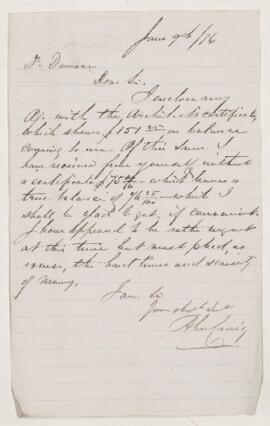 June 9th /76
Dr Dawson
Dear Sir.
I enclose my
a/c with the Architects Certificate,
which shows $151 25 as balance
coming to me. Of this sum I
have received from yourself without
a certificate $75 - which leaves a
true balance of $76 25/100 - which I
shall be glad to get, if convenient.
I have appeared to be rather urgent
at this time but must plead as
excuse, the hard times and scarcity
of money.
I am Sir
Your obedt Svt
Craig